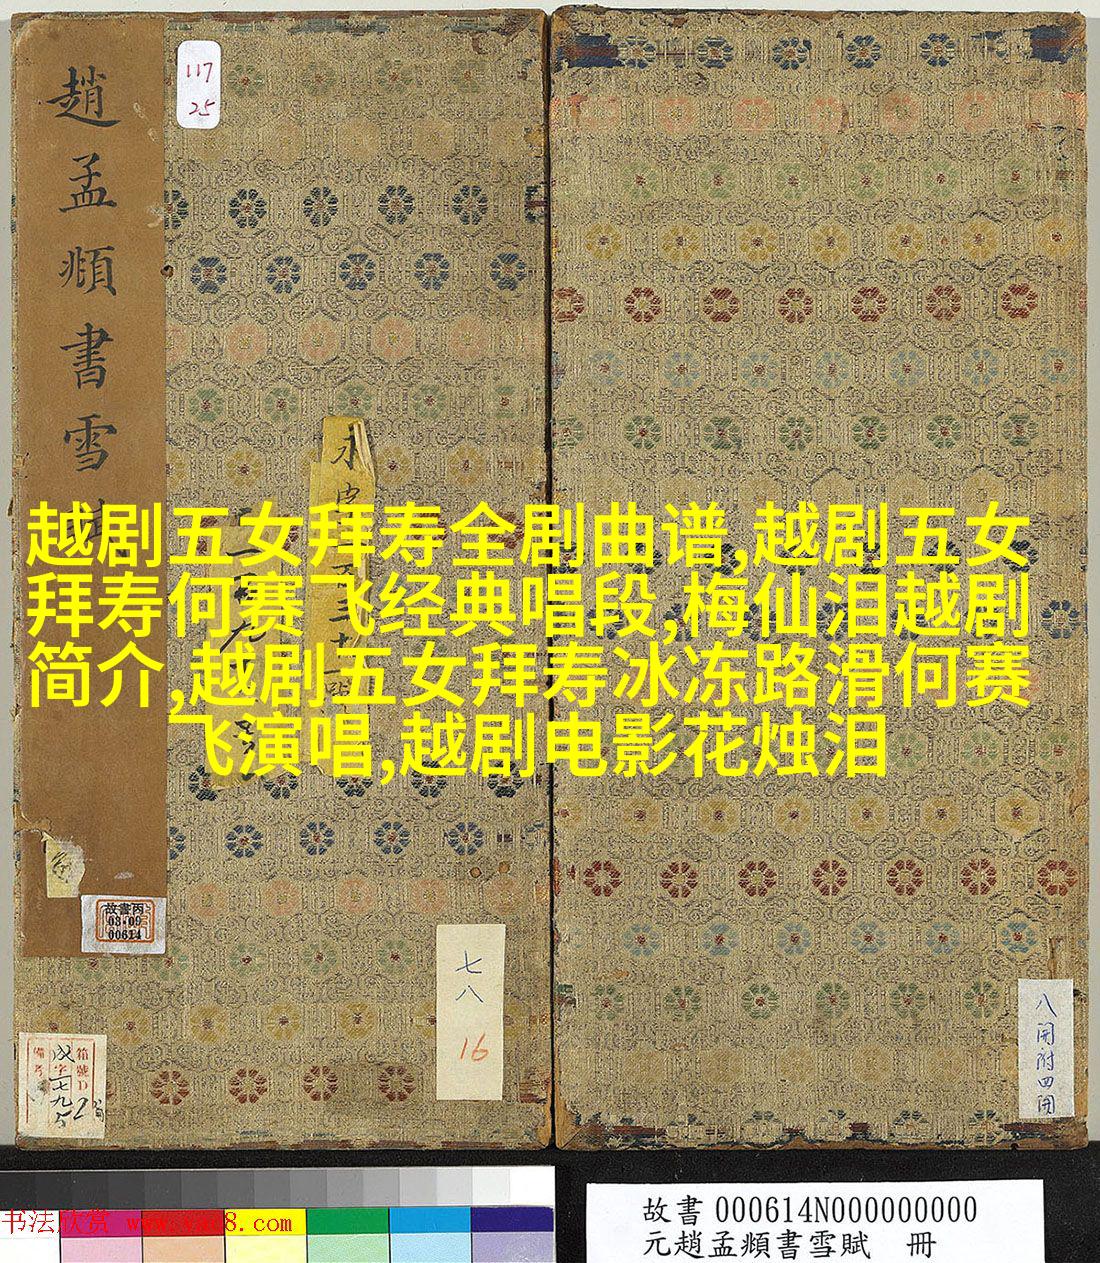 趙孟頫書雪
117
25
越剧五女拜寿全剧曲谱,越剧五女
拜寿何赛飞经典唱段,梅仙泪越剧
简介,越剧五女拜寿冰冻路滑何赛
飞演唱,越剧电影花烛泪
故書丙
03·09
00614
七八
16
八開附四開
箱號D
備考
书法欣赏 www.yac8.com
故書 000614N000000000
元趙孟頫書雪賦 冊